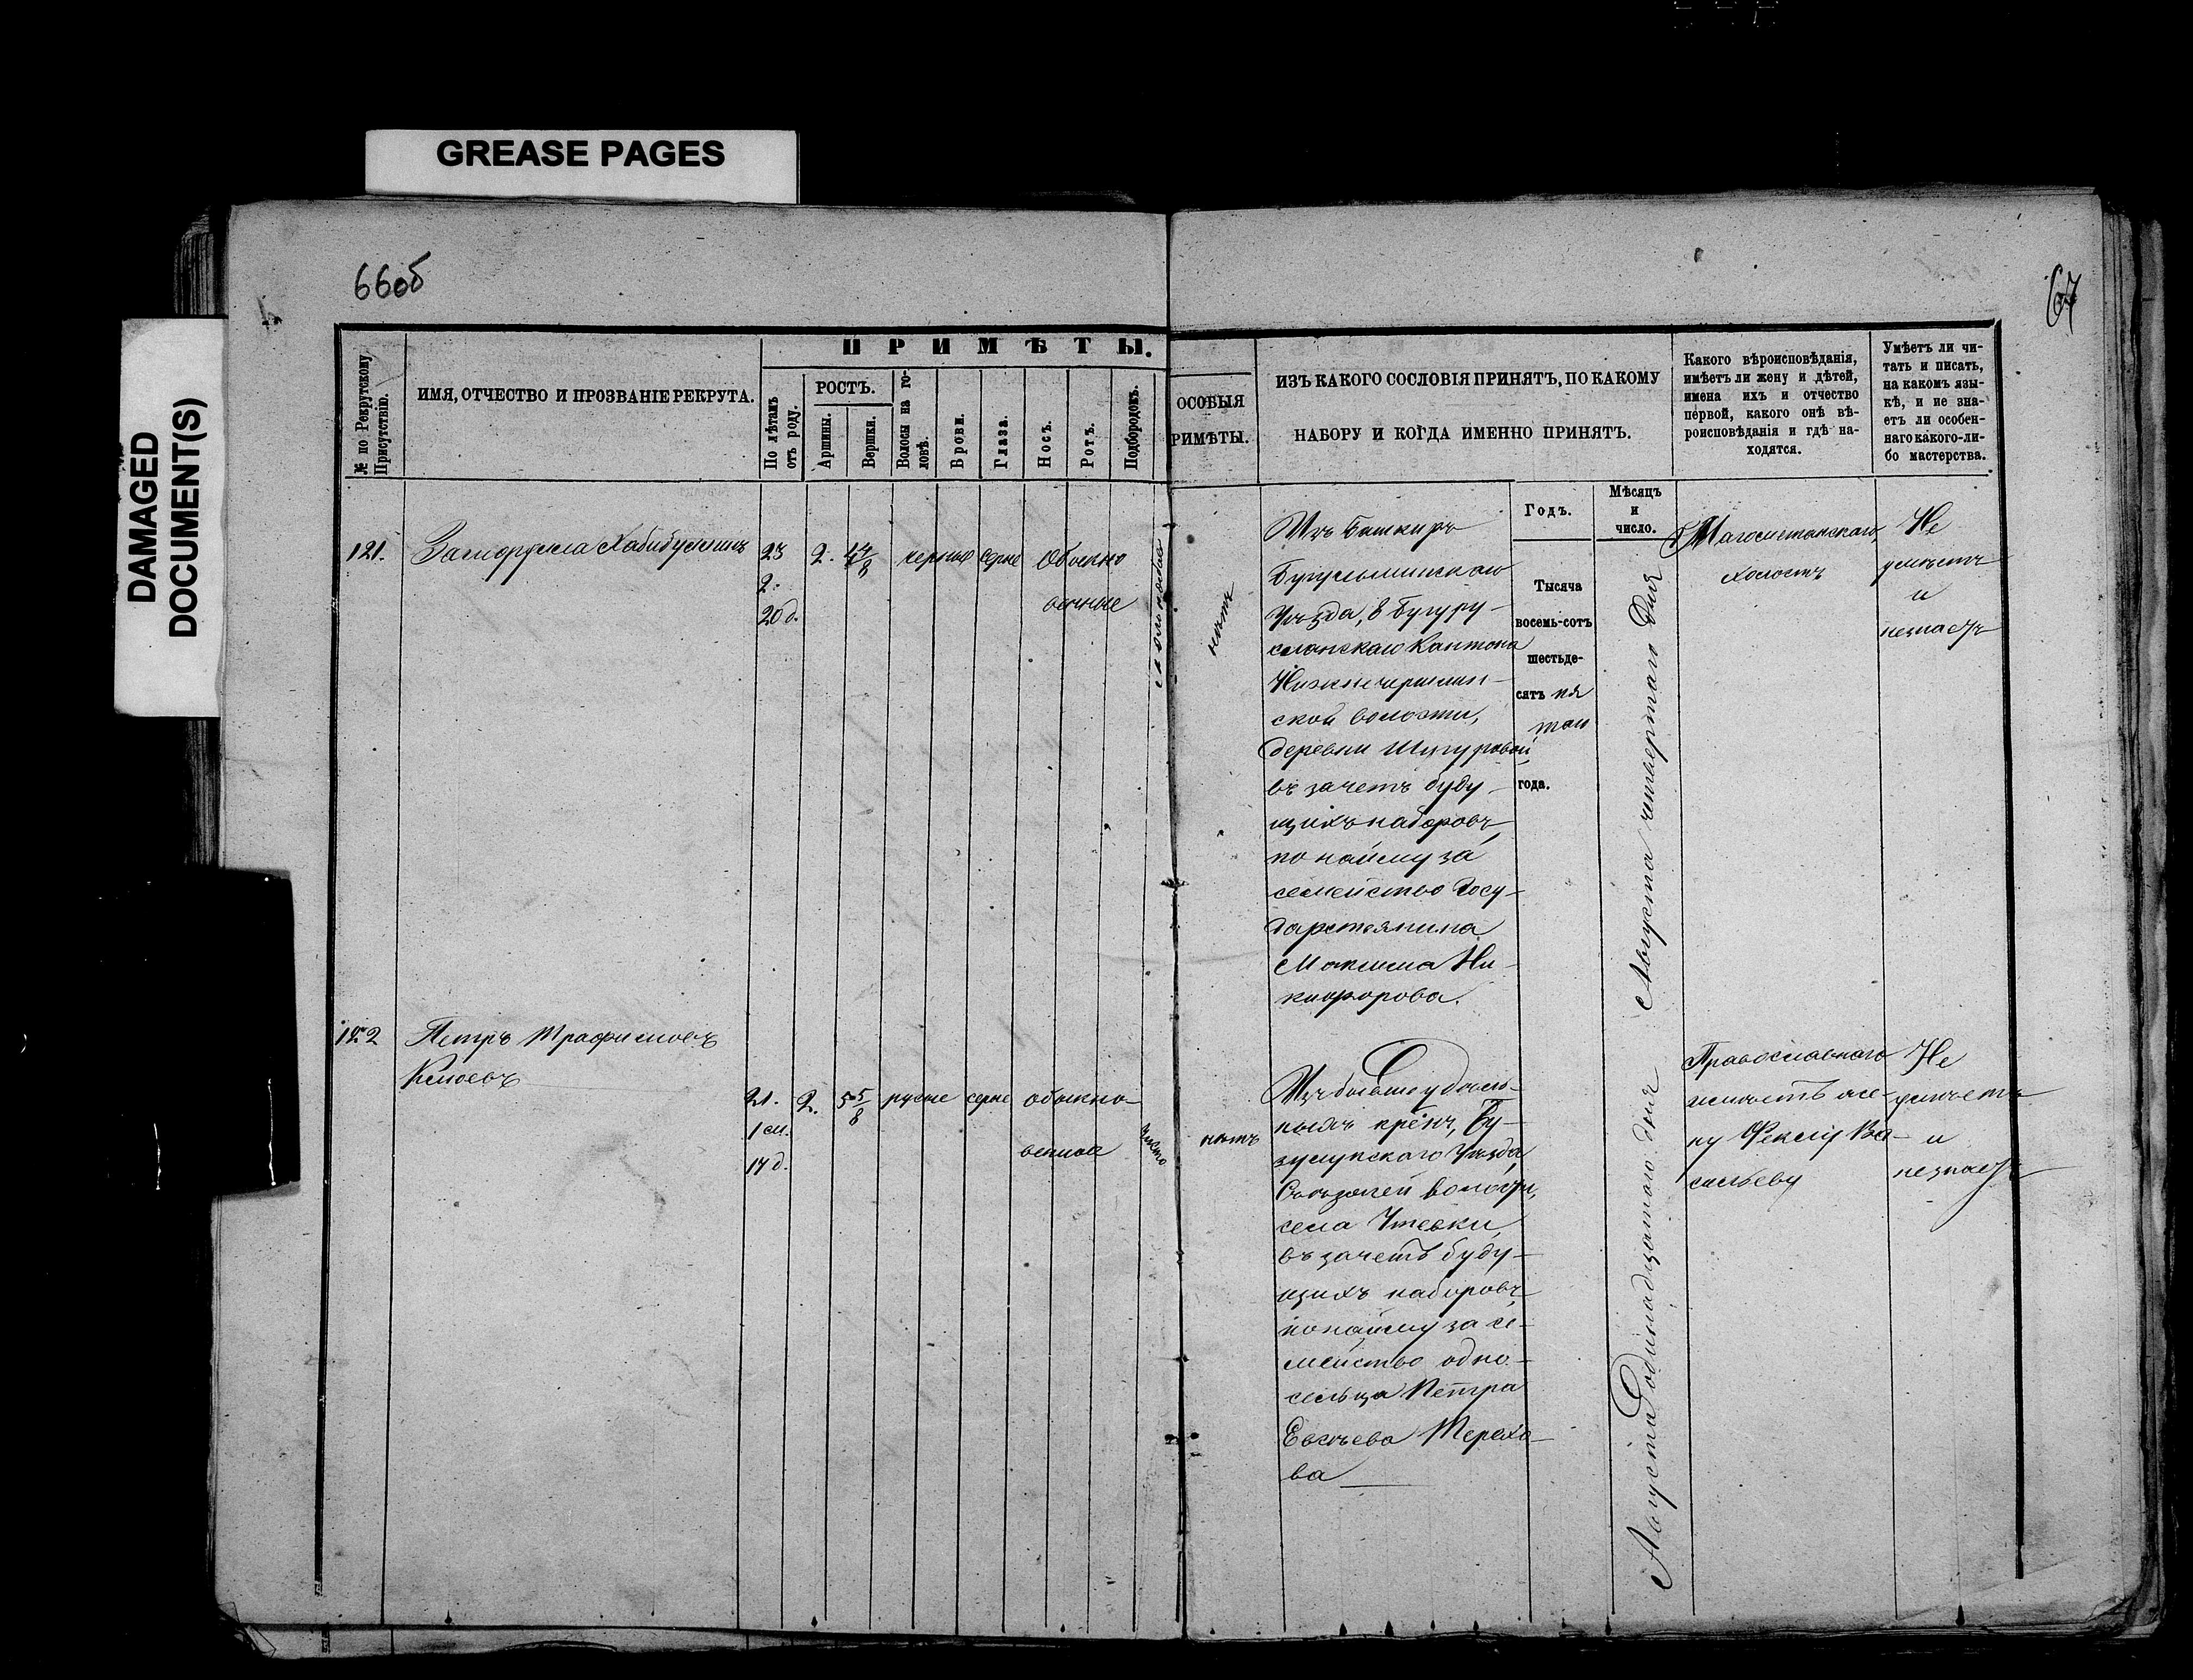 GREASE PAGES
DAMAGED
DOCUMENT(S)
66об
67
№ по Рекрутскому
Присутствію.
ИМЯ, ОТЧЕСТВО И ПРОЗВАНІЕ РЕКРУТА.
ПРИМѢТЫ.
По лѣтамъ
отъ роду.
РОСТЪ.
Аршины.
Вершки.
Волосы на го-
ловѣ.
Брови.
Глаза.
Носъ.
Ротъ.
Подбородокъ.
ОСОБЫЯ
РИМѢТЫ.
ИЗЪ КАКОГО СОСЛОВІЯ ПРИНЯТЪ, ПО КАКОМУ
НАБОРУ И КОГДА ИМЕННО ПРИНЯТЪ.
Какого вѣроисповѣданія,
имѣетъ ли жену и дѣтей,
имена ихъ и отчество
первой, какого онѣ вѣ-
роисповѣданія и гдѣ на-
ходятся.
Умѣетъ ли чи-
тать и писать,
на какомъ язы-
кѣ, и не зна-
етъ ли особен-
наго какого-ли-
бо мастерства.
Годъ.
Мѣсяцъ
и
число.
121.
Хабибуллинъ
23
2.
20 д.
2. 4 4/8
черные
серые
Обыкно
венные
нѣтъ
Изъ Башкиръ
Бугульминскаго
Уѣзда, 8 Бугуру-
сланскаго Кантона
ской волости,
деревни Шугуровой,
въ зачетъ буду-
щихъ наборовъ,
по найму за
семейство Госу-
Максима Ни-
кифорова.
Тысяча
восемь-сотъ
шестьде-
сятъ пя
таго
года.
Августа четвертаго Дня
Магометанскаго,
холостъ
Не
умѣетъ
и
незнаетъ
122
Петръ Трафимовъ
21.
1 м.
14 д.
2. 5 5/8
русые
серые
обыкно-
венные
чисто
нѣтъ
Изъ бывше удѣль-
ныхъ крѣнъ, Бу-
зулукскаго Уѣзда,
волости,
села Утевки,
въ зачетъ буду-
щихъ наборовъ,
по найму за се-
мейство одно-
сельца Петра
Евсѣева Терехо-
ва
Августа одинадцатого дня
Православнаго
имѣетъ же-
ну Феклу Ва-
сильеву
Не
умѣетъ
и
незнаетъ